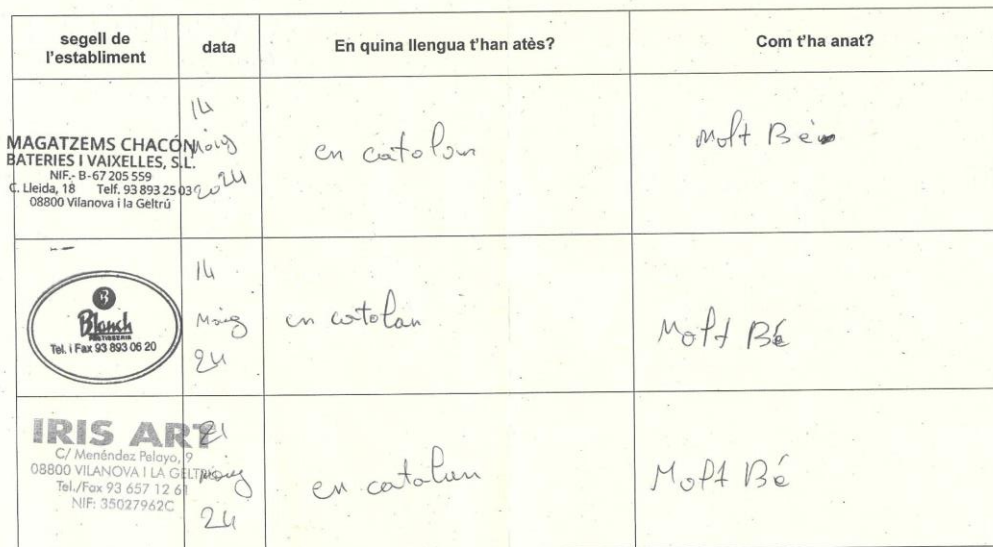 segell de
l'establiment
data
En quina llengua t'han atès?
Com t'ha anat?
MAGATZEMS CHACÓN
BATERIES I VAIXELLES, S.L.
NIF.- B-67 205 559
C. Lleida, 18 Telf. 93 893 25 03
08800 Vilanova i la Geltrú
14
Maig
2024
en catolan
Molt Bé
B
Blanch
PASTISSERIA
Tel. i Fax 93 893 06 20
14
Maig
24
en catolan
Molt Bé
IRIS ART
C/ Menéndez Pelayo, 9
08800 VILANOVA I LA GELTRÚ
Tel./Fax 93 657 12 61
NIF: 35027962C
21
Maig
24
en catalan
Molt Bé